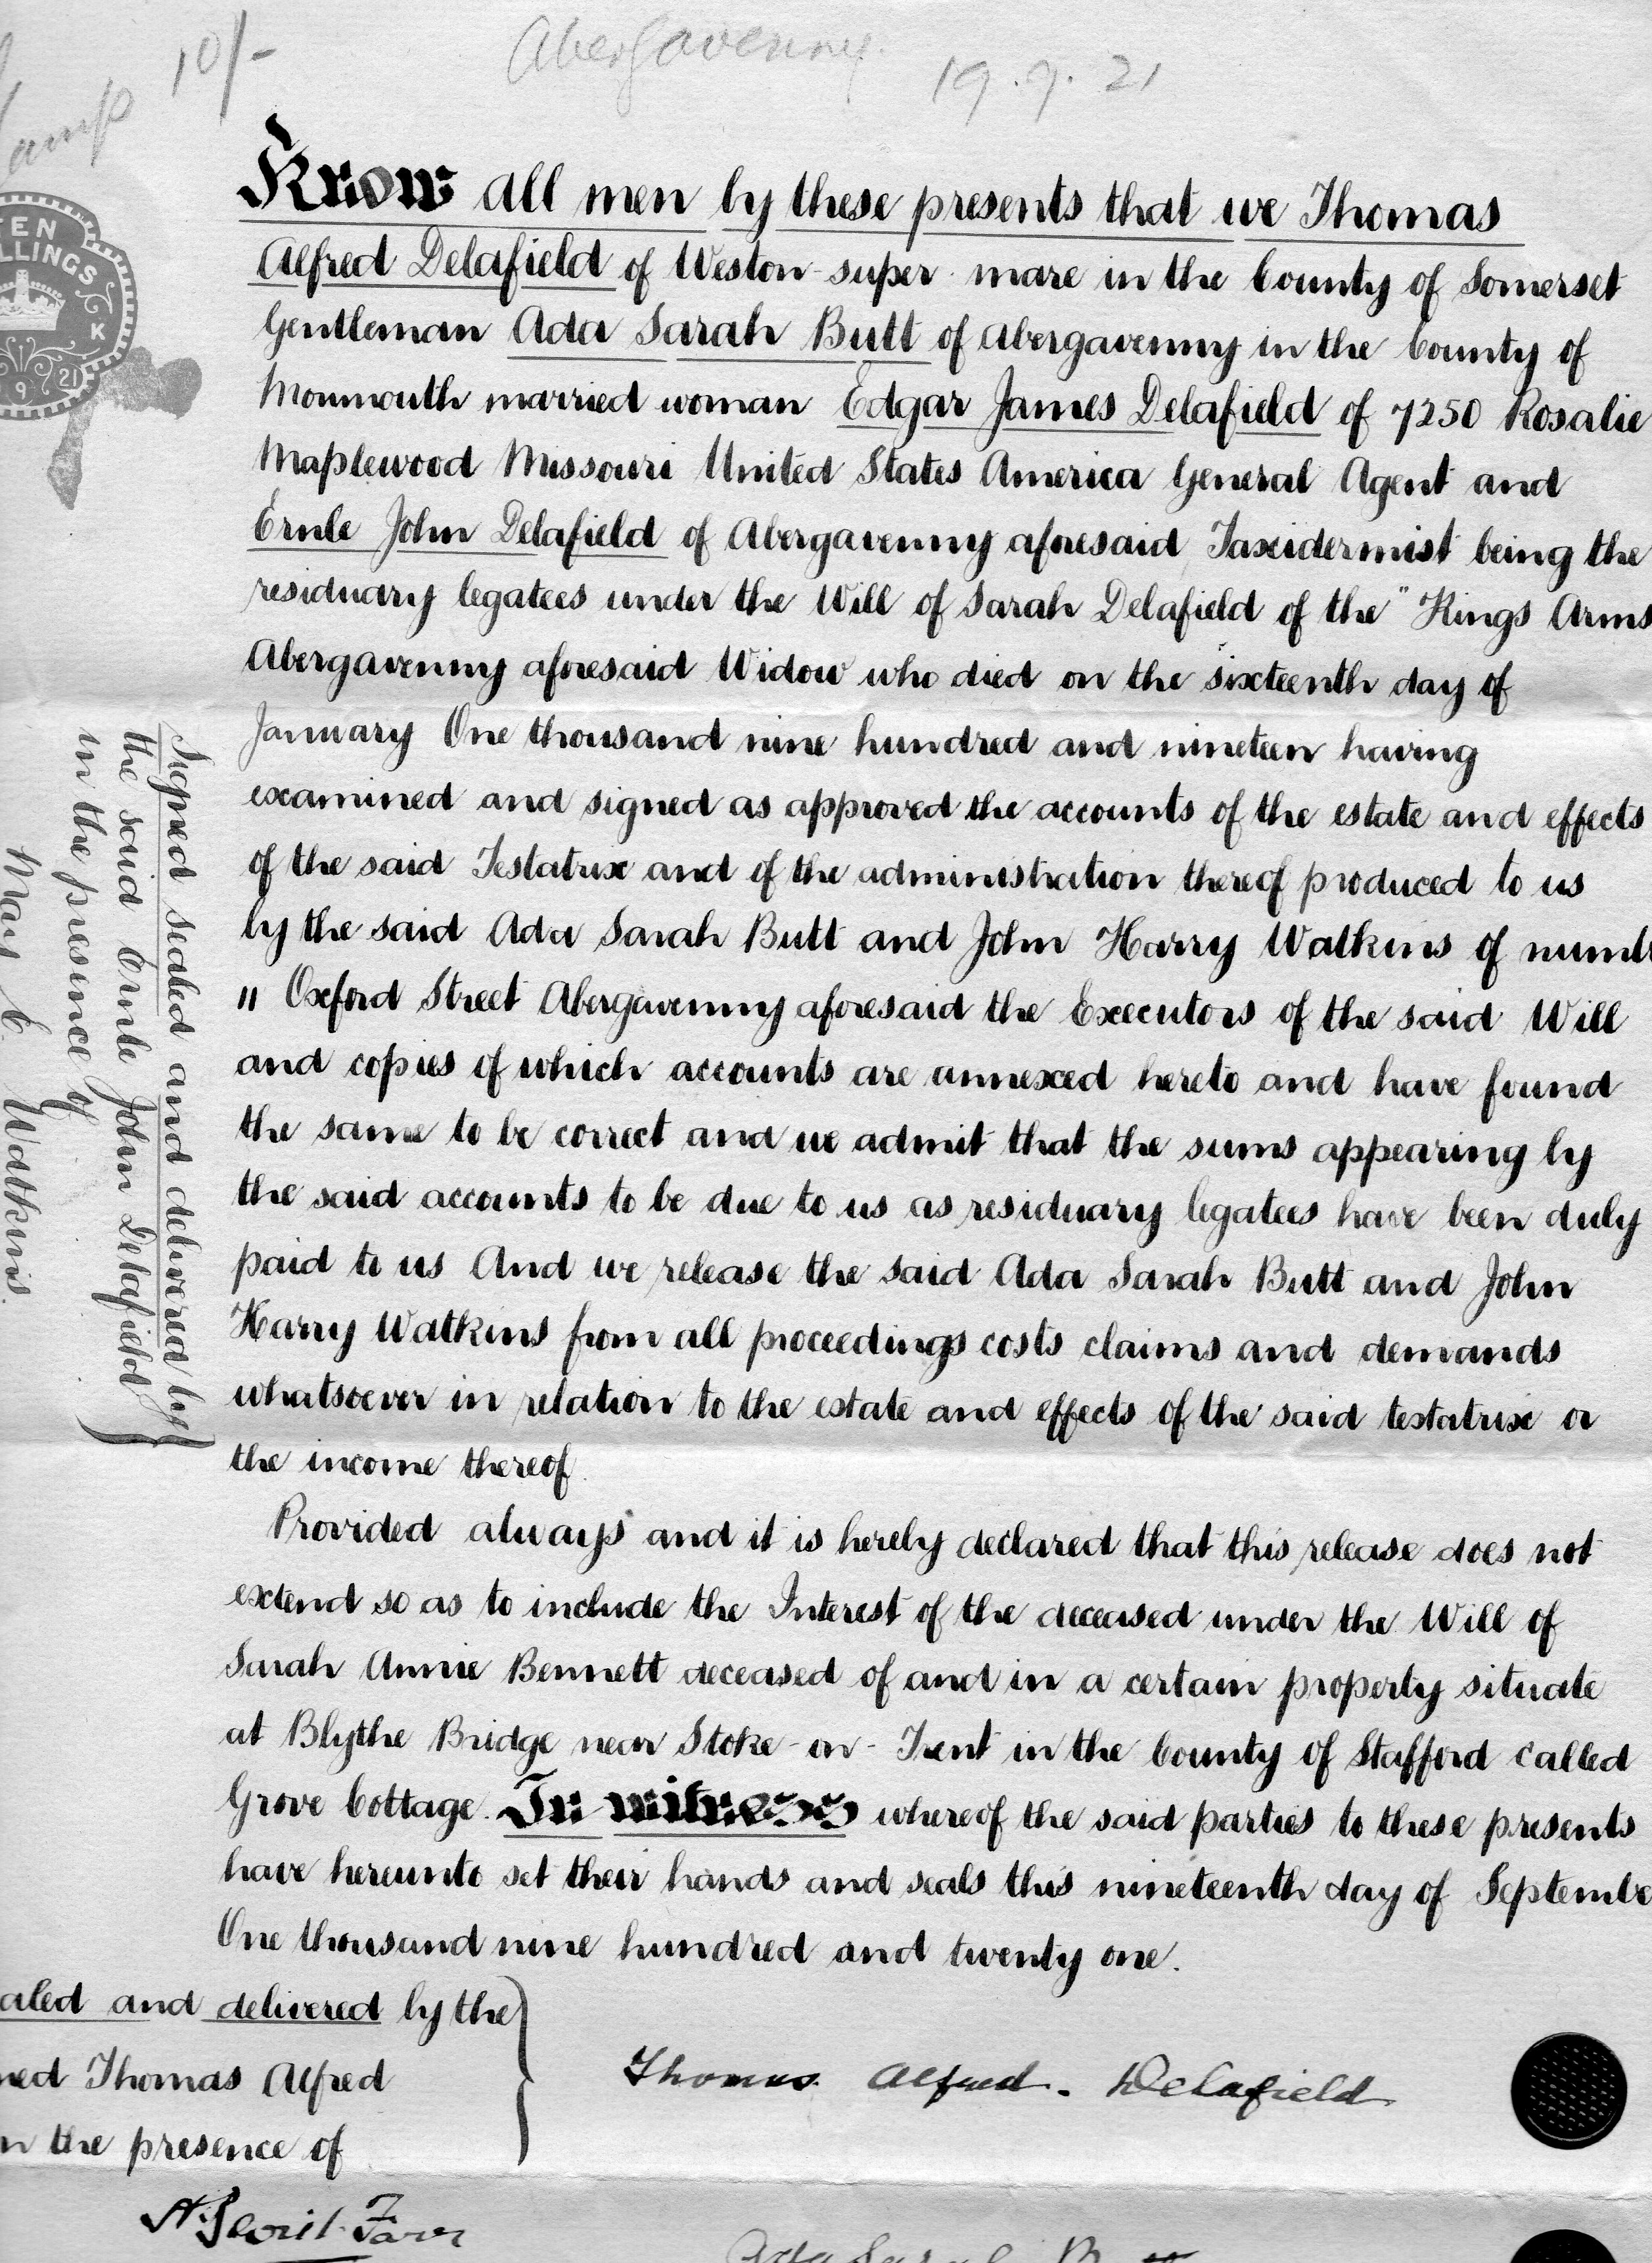 10/-
Abergavenny.
19.9.21
TEN
K
9 21
Know all men by these presents that we Thomas
Alfred Delafield of Weston-super-mare in the County of Somerset
Gentleman Ada Sarah Butt of Abergavenny in the County of
Monmouth married woman Edgar James Delafield of 7250 Rosalie
Maplewood Missouri United States America General Agent and
Ernle John Delafield of Abergavenny aforesaid Taxidermist being the
residuary legatees under the Will of Sarah Delafield of the "Kings Arms
Abergavenny aforesaid Widow who died on the sixteenth day of
January One thousand nine hundred and nineteen having
examined and signed as approved the accounts of the estate and effects
of the said Testatrix and of the administration thereof produced to us
by the said Ada Sarah Butt and John Harry Watkins of numb
11 Oxford Street Abergavenny aforesaid the Executors of the said Will
and copies of which accounts are annexed hereto and have found
the same to be correct and we admit that the sums appearing by
the said accounts to be due to us as residuary legatees have been duly
paid to us And we release the said Ada Sarah Butt and John
Harry Watkins from all proceedings costs claims and demands
whatsoever in relation to the estate and effects of the said testatrix or
the income thereof.
Provided always and it is hereby declared that this release does not
extend so as to include the Interest of the deceased under the Will of
Sarah Annie Bennett deceased of and in a certain property situate
at Blythe Bridge near Stoke-on-Trent in the County of Stafford called
Grove Cottage. In witness whereof the said parties to these presents
have hereunto set their hands and seals this nineteenth day of Septembe
One thousand nine hundred and twenty one.
Signed sealed and delivered by
the said Ernle John Delafield
in the presence of
Watkins.
aled and delivered by the
ned Thomas Alfred
n the presence of
Thomas Alfred. Delafield
Ada Sarah